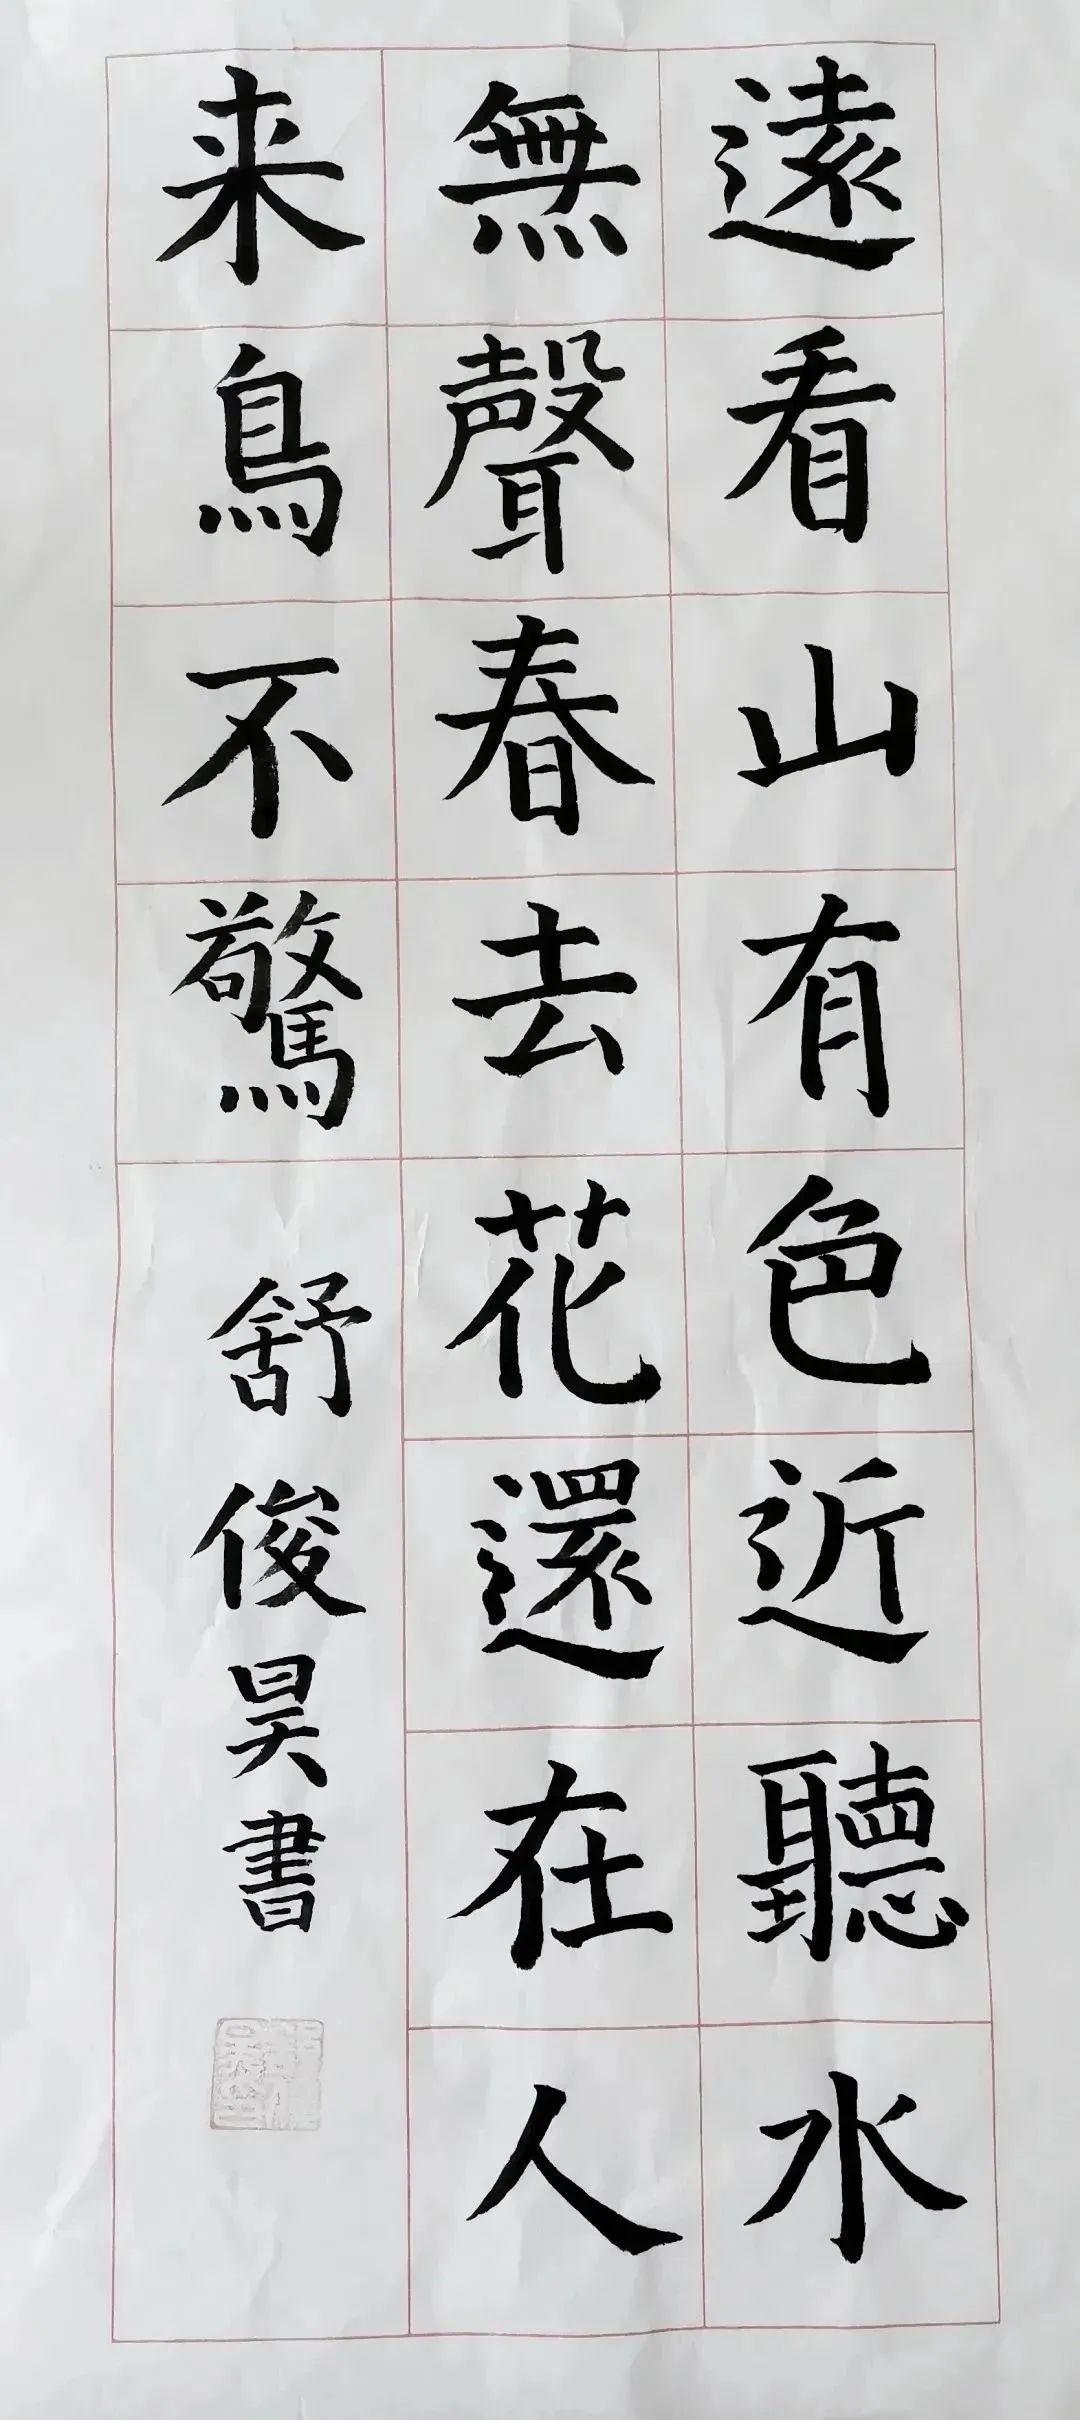 遠看山有色近聽水
無聲春去花還在人
来鳥不驚
舒俊昊書